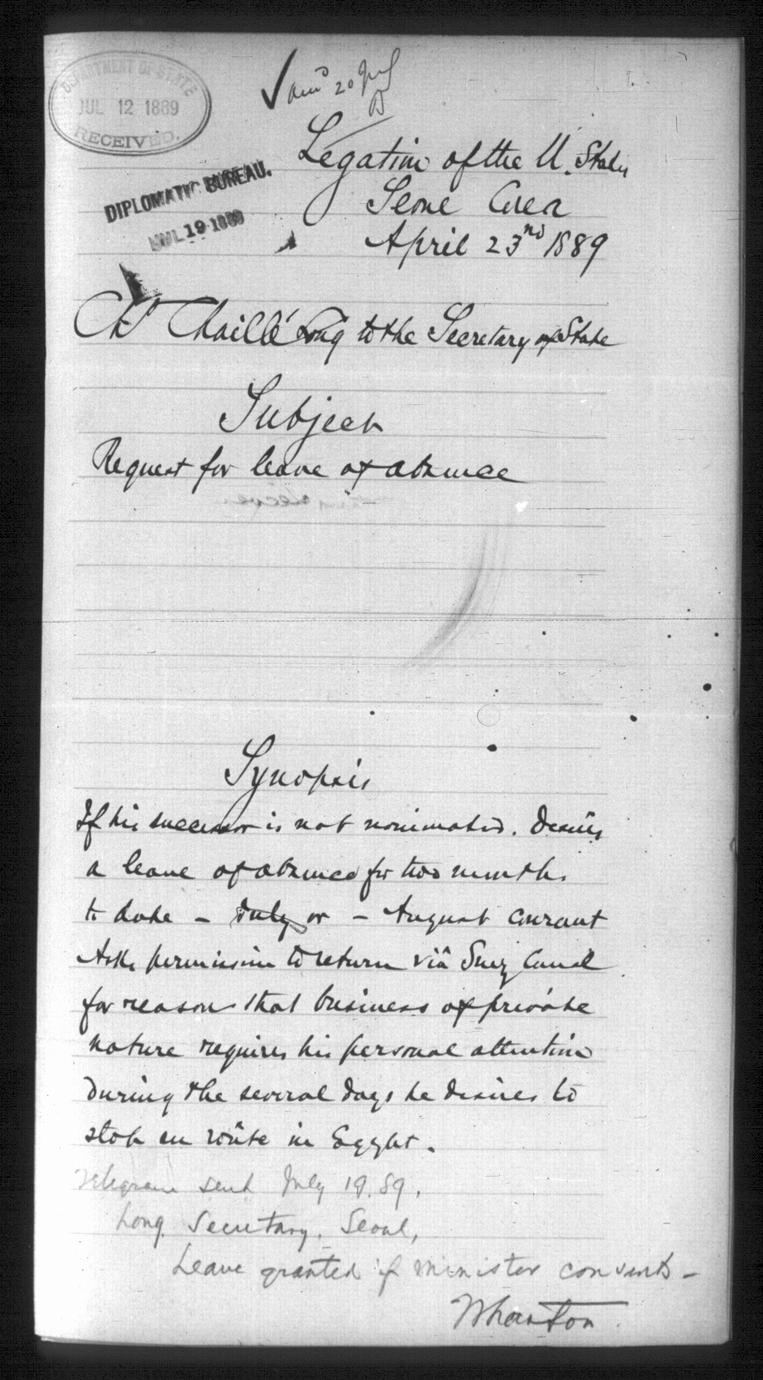 DEPARTMENT OF STATE
JUL 12 1889
RECEIVED.
✓ 20 July
DIPLOMATIC BUREAU.
JUL 19 1889
Legation of the U. States
Seoul Corea
April 23rd 1889
Chs Chaillé Long to the Secretary of State
Subject
Request for leave of absence
Synopsis
If his successor is not nominated. Desires
a leave of absence for two months
to date - July or - August courant
Asks permission to return viâ Suez Canal
for reason that business of private
nature requires his personal attention
during the several days he desires to
stop en route in Egypt.
Telegram sent July 19. 89.
Long Secretary, Seoul,
Leave granted if minister consents -
Wharton